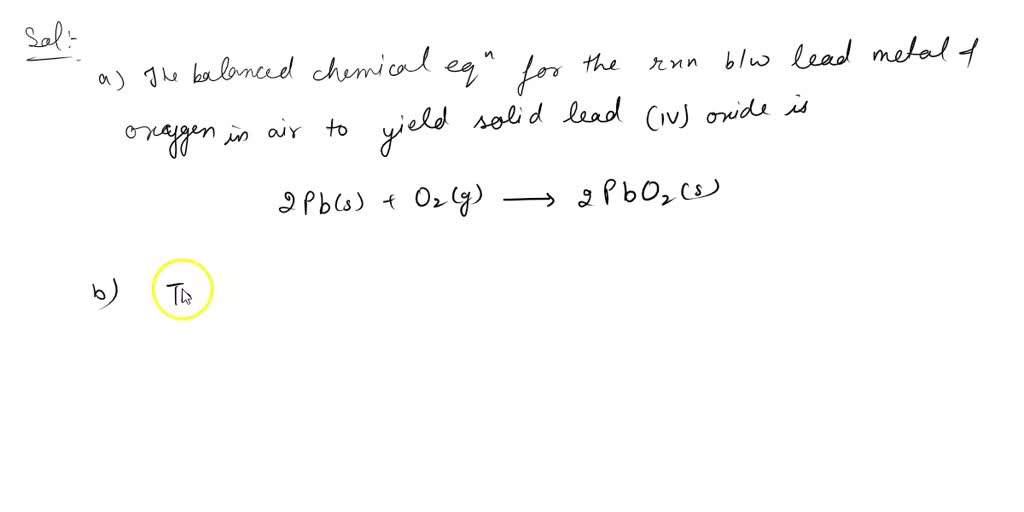 Sol:-
a) The balanced chemical eqⁿ for the rxn b/w lead metal &
oxygen in air to yield solid lead (IV) oxide is
2Pb(s) + O₂(g) ⟶ 2PbO₂(s)
b) Th